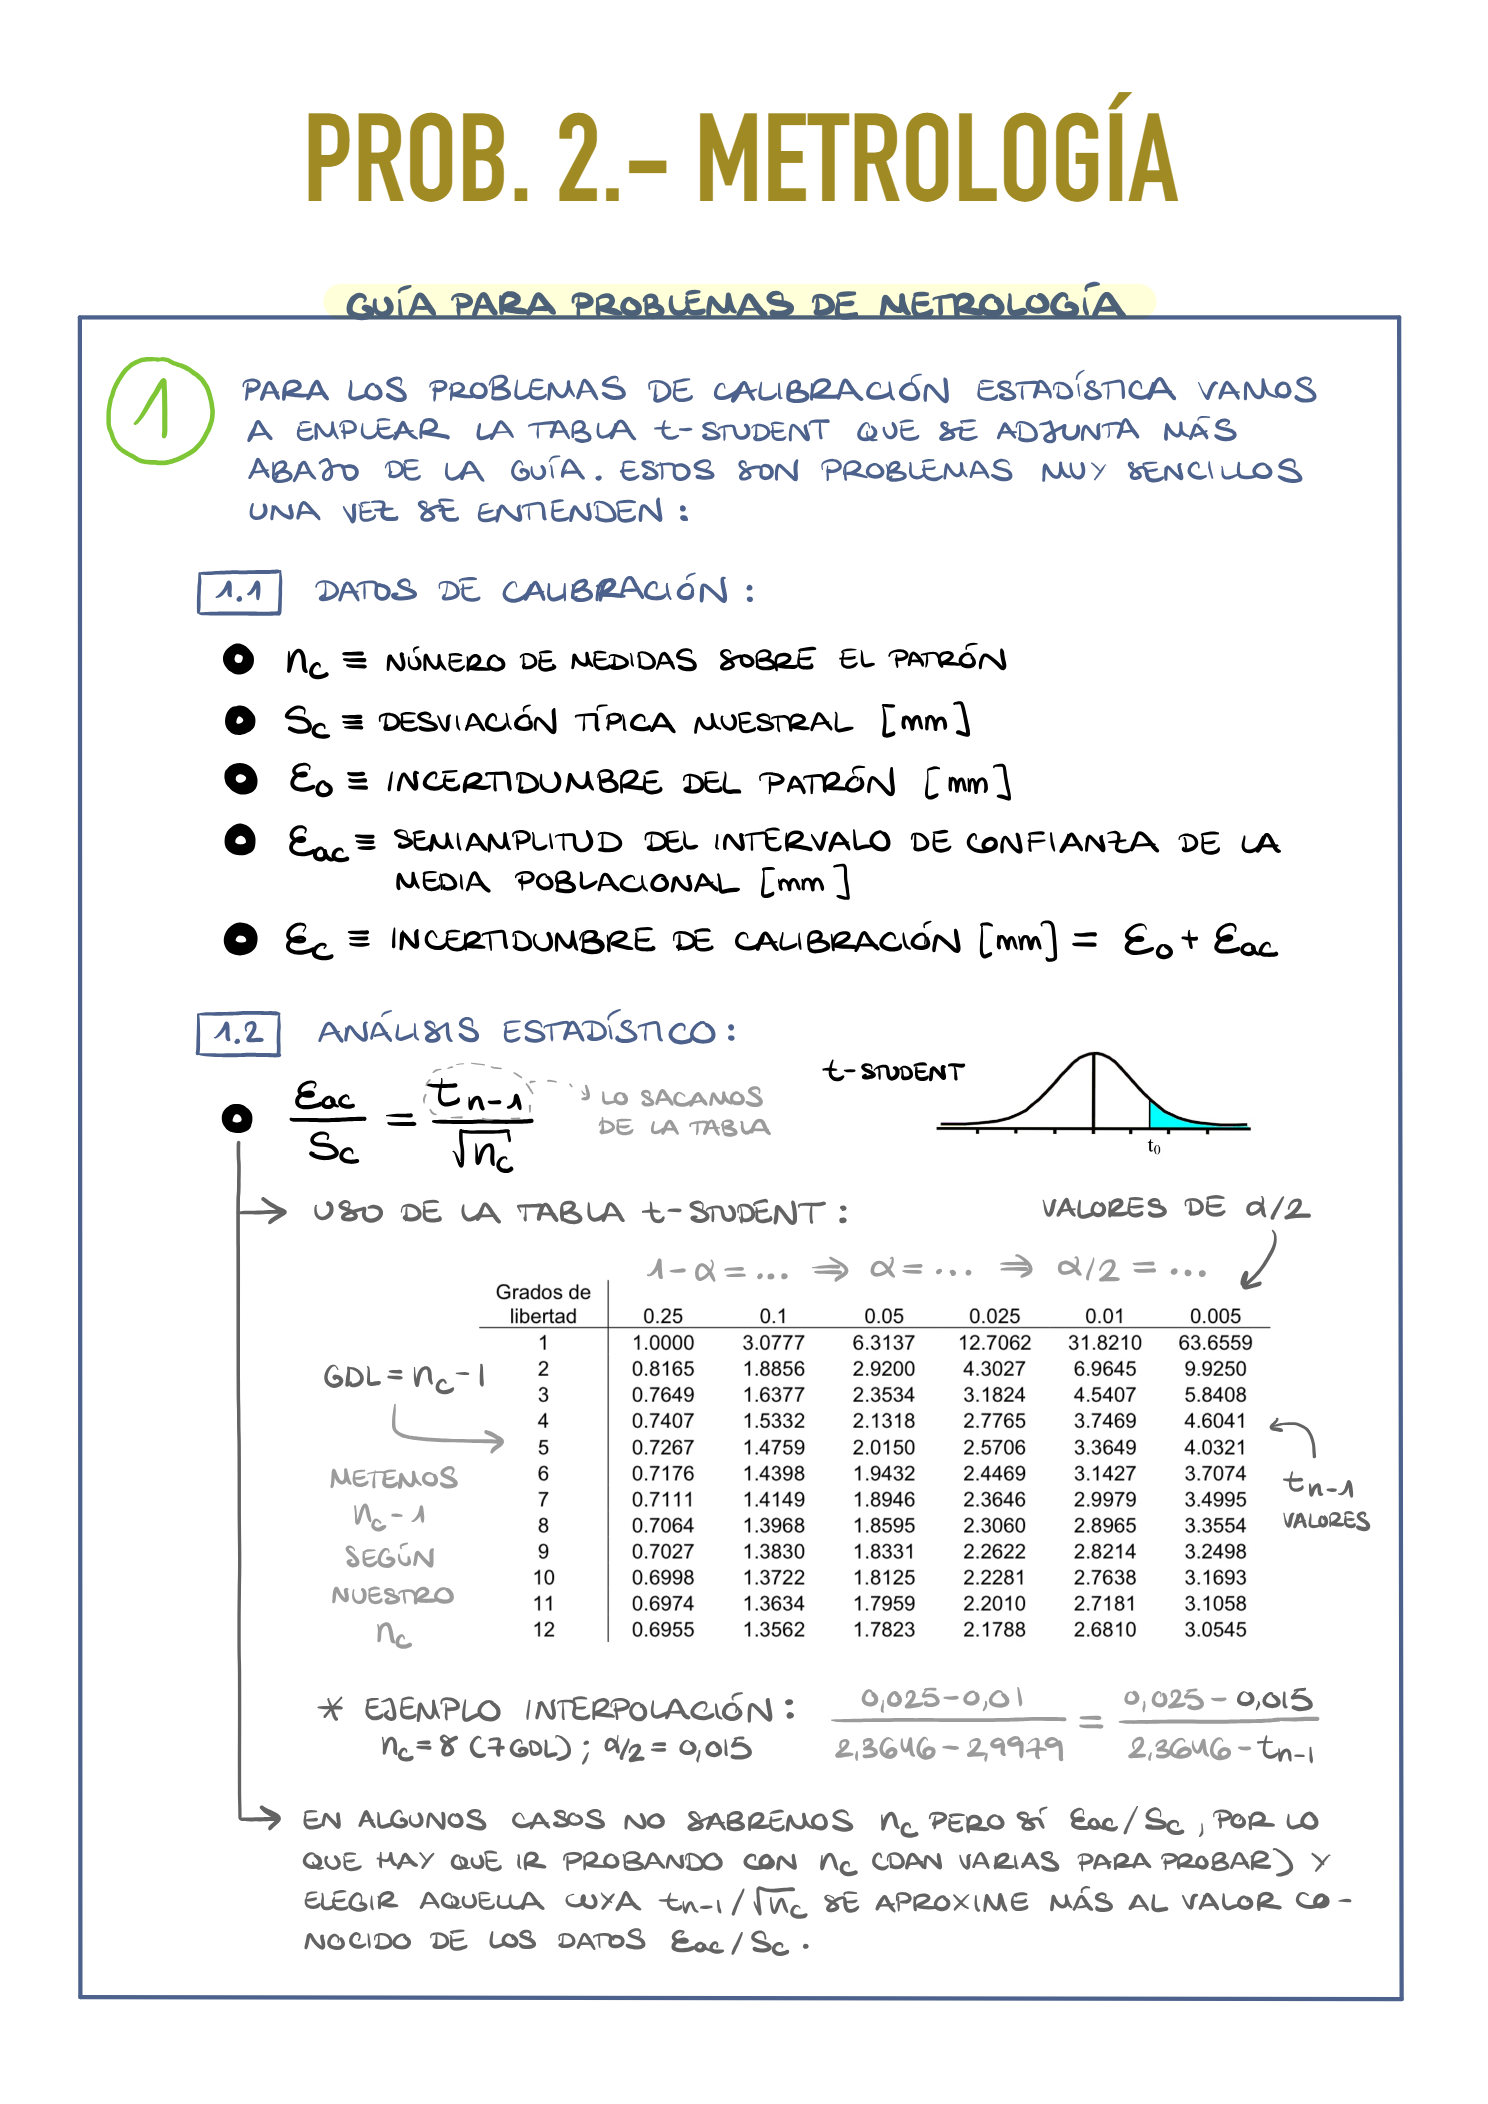 PROB. 2.- METROLOGÍA
GUÍA PARA PROBLEMAS DE METROLOGÍA
1
PARA LOS PROBLEMAS DE CALIBRACIÓN ESTADÍSTICA VAMOS
A EMPLEAR LA TABLA t-STUDENT QUE SE ADJUNTA MÁS
ABAJO DE LA GUÍA. ESTOS SON PROBLEMAS MUY SENCILLOS
UNA VEZ SE ENTIENDEN:
1.1 DATOS DE CALIBRACIÓN:
nc ≡ NÚMERO DE MEDIDAS SOBRE EL PATRÓN
Sc ≡ DESVIACIÓN TÍPICA MUESTRAL [mm]
Ɛo ≡ INCERTIDUMBRE DEL PATRÓN [mm]
Ɛac ≡ SEMIAMPLITUD DEL INTERVALO DE CONFIANZA DE LA
MEDIA POBLACIONAL [mm]
Ɛc ≡ INCERTIDUMBRE DE CALIBRACIÓN [mm] = Ɛo + Ɛac
1.2 ANÁLISIS ESTADÍSTICO:
Ɛac/Sc = tn-1/√nc
LO SACAMOS
DE LA TABLA
t-STUDENT
t0
USO DE LA TABLA t-STUDENT:
VALORES DE α/2
1-α = ... ⇒ α = ... ⇒ α/2 = ...
Grados de
libertad 0.25 0.1 0.05 0.025 0.01 0.005
1 1.0000 3.0777 6.3137 12.7062 31.8210 63.6559
2 0.8165 1.8856 2.9200 4.3027 6.9645 9.9250
3 0.7649 1.6377 2.3534 3.1824 4.5407 5.8408
4 0.7407 1.5332 2.1318 2.7765 3.7469 4.6041
5 0.7267 1.4759 2.0150 2.5706 3.3649 4.0321
6 0.7176 1.4398 1.9432 2.4469 3.1427 3.7074
7 0.7111 1.4149 1.8946 2.3646 2.9979 3.4995
8 0.7064 1.3968 1.8595 2.3060 2.8965 3.3554
9 0.7027 1.3830 1.8331 2.2622 2.8214 3.2498
10 0.6998 1.3722 1.8125 2.2281 2.7638 3.1693
11 0.6974 1.3634 1.7959 2.2010 2.7181 3.1058
12 0.6955 1.3562 1.7823 2.1788 2.6810 3.0545
GDL = nc-1
METEMOS
nc-1
SEGÚN
NUESTRO
nc
tn-1
VALORES
* EJEMPLO INTERPOLACIÓN:
nc = 8 (7 GDL) ; α/2 = 0,015
0,025-0,01 / 2,3646-2,9979 = 0,025-0,015 / 2,3646-tn-1
EN ALGUNOS CASOS NO SABREMOS nc PERO SÍ Ɛac/Sc, POR LO
QUE HAY QUE IR PROBANDO CON nc (DAN VARIAS PARA PROBAR) Y
ELEGIR AQUELLA CUYA tn-1/√nc SE APROXIME MÁS AL VALOR CO-
NOCIDO DE LOS DATOS Ɛac/Sc.